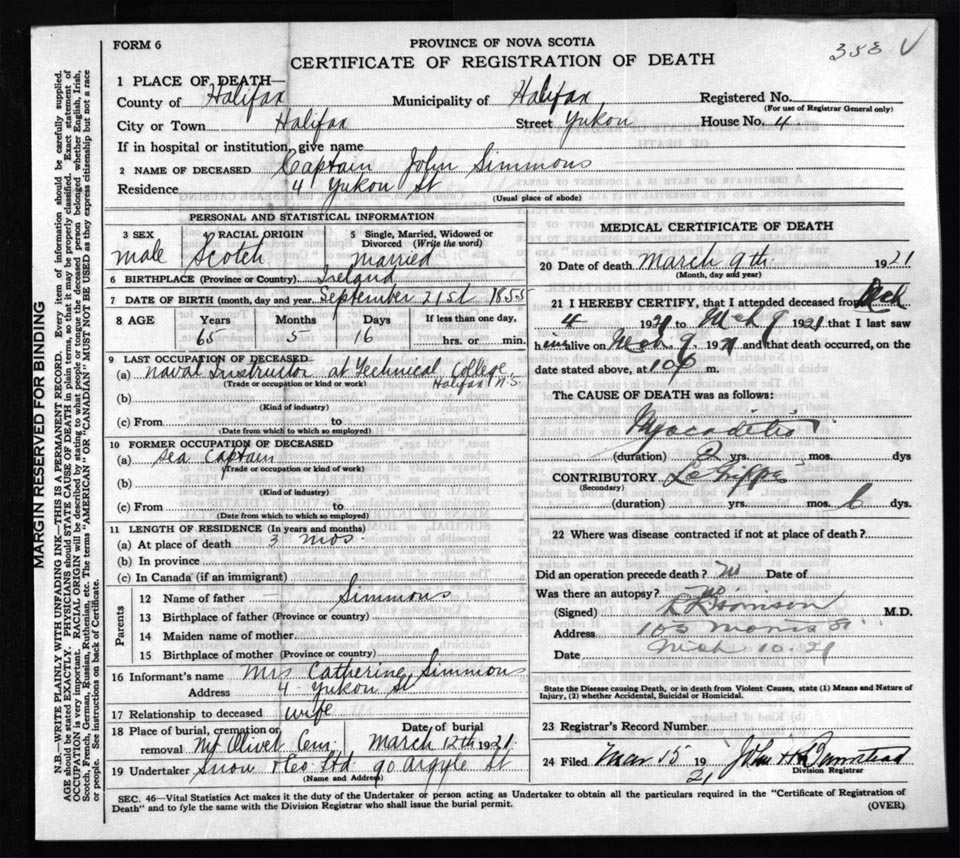 358 V
FORM 6
PROVINCE OF NOVA SCOTIA
CERTIFICATE OF REGISTRATION OF DEATH
MARGIN RESERVED FOR BINDING
N.B.—WRITE PLAINLY WITH UNFADING INK—THIS IS A PERMANENT RECORD. Every item of information should be carefully supplied.
AGE should be stated EXACTLY. PHYSICIANS should STATE CAUSE OF DEATH in plain terms, so that it may be properly classified. Exact statement of
OCCUPATION is very important. RACIAL ORIGIN will be described by stating to what people or tongue the deceased person belonged whether English, Irish,
Scotch, French, German, Russian, Ruthenian, etc. The terms "AMERICAN" OR "CANADIAN" MUST NOT BE USED as they express citizenship but not a race
or people. See instructions on back of Certificate.
1 PLACE OF DEATH—
County of Halifax Municipality of Halifax Registered No.
(For use of Registrar General only)
City or Town Halifax Street Yukon House No. 4
If in hospital or institution, give name
2 NAME OF DECEASED Captain John Simmons
Residence 4 Yukon St
(Usual place of abode)
PERSONAL AND STATISTICAL INFORMATION
3 SEX 4 RACIAL ORIGIN 5 Single, Married, Widowed or Divorced (Write the word)
male Scotch Married
6 BIRTHPLACE (Province or Country) Ireland
7 DATE OF BIRTH (month, day and year September 21st 1855
8 AGE Years Months Days If less than one day,
65 5 16 hrs. or min.
9 LAST OCCUPATION OF DECEASED
(a) Naval Instructor at Technical College
Halifax N.S.
(Trade or occupation or kind or work)
(b)
(Kind of industry)
(c) From to
(Date from which to which so employed)
10 FORMER OCCUPATION OF DECEASED
(a) Sea Captain
(Trade or occupation or kind of work)
(b)
(Kind of industry)
(c) From to
(Date from which to which so employed)
11 LENGTH OF RESIDENCE (In years and months)
(a) At place of death 3 mos.
(b) In province
(c) In Canada (if an immigrant)
Parents
12 Name of father Simmons
13 Birthplace of father (Province or country)
14 Maiden name of mother
15 Birthplace of mother (Province or country)
16 Informant's name Mrs Catherine Simmons
Address 4 Yukon St
17 Relationship to deceased wife
18 Place of burial, cremation or removal Mt Olivet Cem. Date of burial March 12th 1921
19 Undertaker Snow & Co. Ltd 90 Argyle St
(Name and Address)
MEDICAL CERTIFICATE OF DEATH
20 Date of death March 9th 1921
(Month, day and year)
21 I HEREBY CERTIFY, that I attended deceased from Mch
4 1921 to Mch 9 1921 that I last saw
him alive on Mch 9 1921 and that death occurred, on the
date stated above, at 10 m.
The CAUSE OF DEATH was as follows:
Myocaditis
(duration) 2 yrs. mos. dys
CONTRIBUTORY La Grippe
(Secondary)
(duration) yrs. mos. 6 dys.
22 Where was disease contracted if not at place of death?
Did an operation precede death? no Date of
Was there an autopsy? no
(Signed) M.D.
Address 100 Morris St.
Date Mch 10. 21
State the Disease causing Death, or in death from Violent Causes, state (1) Means and Nature of
Injury, (2) whether Accidental, Suicidal or Homicidal.
23 Registrar's Record Number
24 Filed Mar 15 1921 John H
Division Registrar
SEC. 46—Vital Statistics Act makes it the duty of the Undertaker or person acting as Undertaker to obtain all the particulars required in the "Certificate of Registration of
Death" and to fyle the same with the Division Registrar who shall issue the burial permit.
(OVER)